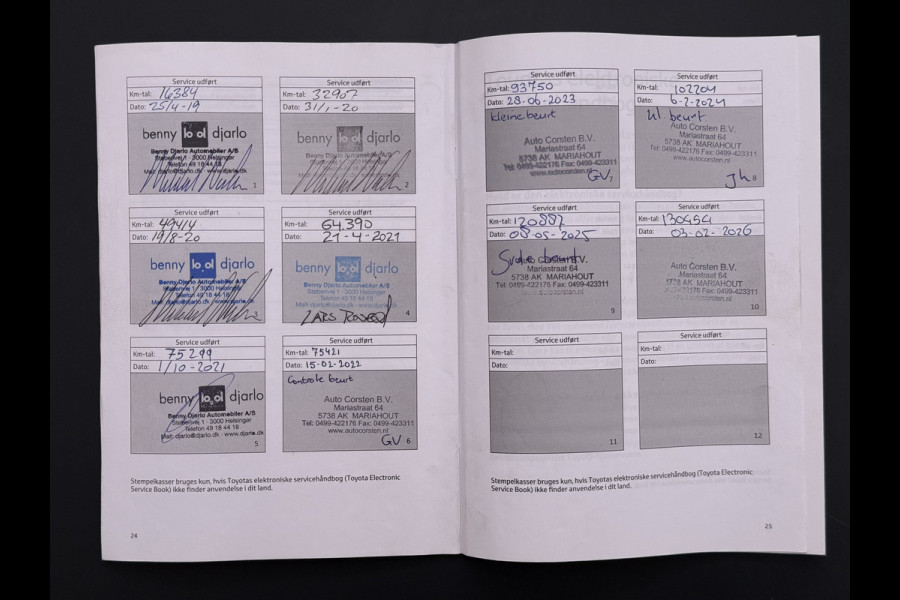 Service udført
Km-tal: 16384
Dato: 25/4-19
benny lo_ol djarlo
Benny Djarlo Automobiler A/S
Støberivej 1 - 3000 Helsingør
Telefon 49 18 44 18
Mail: djarlo@djarlo.dk - www.djarlo.dk
1
Service udført
Km-tal: 32907
Dato: 31/1-20
benny lo_ol djarlo
Benny Djarlo Automobiler A/S
Støberivej 1 - 3000 Helsingør
Telefon 49 18 44 18
Mail: djarlo@djarlo.dk - www.djarlo.dk
2
Service udført
Km-tal: 49414
Dato: 19/8-20
benny lo_ol djarlo
Benny Djarlo Automobiler A/S
Støberivej 1 - 3000 Helsingør
Telefon 49 18 44 18
Mail: djarlo@djarlo.dk - www.djarlo.dk
3
Service udført
Km-tal: 64.390
Dato: 21-4-2021
benny lo_ol djarlo
Benny Djarlo Automobiler A/S
Støberivej 1 - 3000 Helsingør
Telefon 49 18 44 18
Mail: djarlo@djarlo.dk - www.djarlo.dk
4
Service udført
Km-tal: 75299
Dato: 1/10-2021
benny lo_ol djarlo
Benny Djarlo Automobiler A/S
Støberivej 1 - 3000 Helsingør
Telefon 49 18 44 18
Mail: djarlo@djarlo.dk - www.djarlo.dk
5
Service udført
Km-tal: 75421
Dato: 15-02-2022
Controle beurt
Auto Corsten B.V.
Mariastraat 64
5738 AK MARIAHOUT
Tel: 0499-422176 Fax: 0499-423311
www.autocorsten.nl
GV 6
Stempelkasser bruges kun, hvis Toyotas elektroniske servicehåndbog (Toyota Electronic
Service Book) ikke finder anvendelse i dit land.
24
Service udført
Km-tal: 93750
Dato: 28-06-2023
kleine beurt
Auto Corsten B.V.
Mariastraat 64
5738 AK MARIAHOUT
Tel: 0499-422176 Fax: 0499-423311
www.autocorsten.nl
GV 7
Service udført
Km-tal: 102204
Dato: 6-2-2024
beurt
Auto Corsten B.V.
Mariastraat 64
5738 AK MARIAHOUT
Tel: 0499-422176 Fax: 0499-423311
www.autocorsten.nl
8
Service udført
Km-tal: 120887
Dato: 08-05-2025
beurt
Mariastraat 64
5738 AK MARIAHOUT
Tel: 0499-422176 Fax: 0499-423311
www.autocorsten.nl
9
Service udført
Km-tal: 130454
Dato: 03-02-2026
Auto Corsten B.V.
Mariastraat 64
5738 AK MARIAHOUT
Tel: 0499-422176 Fax: 0499-423311
www.autocorsten.nl
10
Service udført
Km-tal:
Dato:
11
Service udført
Km-tal:
Dato:
12
Stempelkasser bruges kun, hvis Toyotas elektroniske servicehåndbog (Toyota Electronic
Service Book) ikke finder anvendelse i dit land.
25